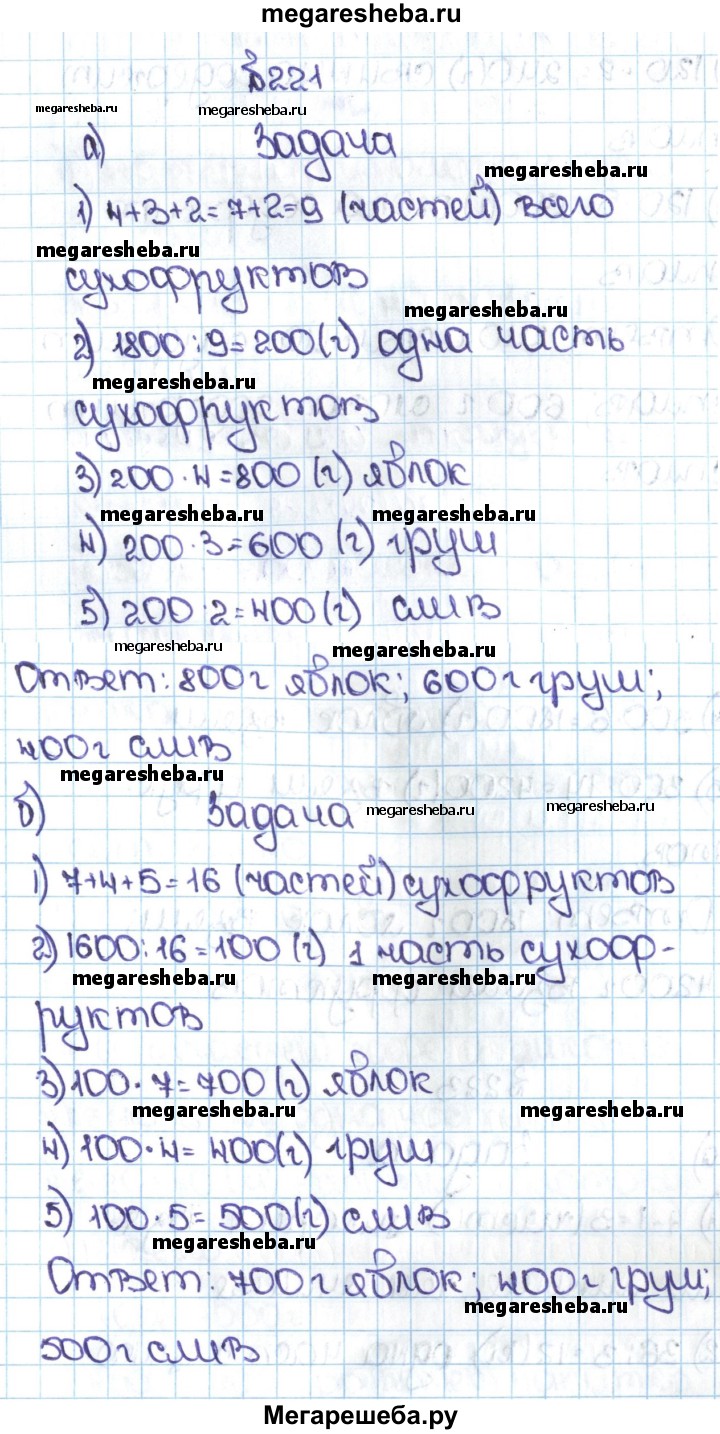 megaresheba.ru
№221
megaresheba.ru megaresheba.ru
а) Задача
megaresheba.ru
1) 4+3+2=7+2=9 (частей) всего
megaresheba.ru
сухофруктов
megaresheba.ru
2) 1800:9=200(г) одна часть
megaresheba.ru
сухофруктов
3) 200·4=800 (г) яблок
megaresheba.ru megaresheba.ru
4) 200·3=600 (г) груш
5) 200·2=400(г) слив
megaresheba.ru megaresheba.ru
Ответ: 800г яблок; 600г груш;
400г слив
megaresheba.ru
б) Задача megaresheba.ru megaresheba.ru
1) 7+4+5=16 (частей) сухофруктов
2) 1600:16=100 (г) 1 часть сухоф-
megaresheba.ru megaresheba.ru
руктов
3) 100·7=700(г) яблок
megaresheba.ru megaresheba.ru
4) 100·4=400(г) груш
5) 100·5=500(г) слив
megaresheba.ru
Ответ: 700г яблок; 400г груш;
megaresheba.ru
500г слив
Мегарешеба.ру